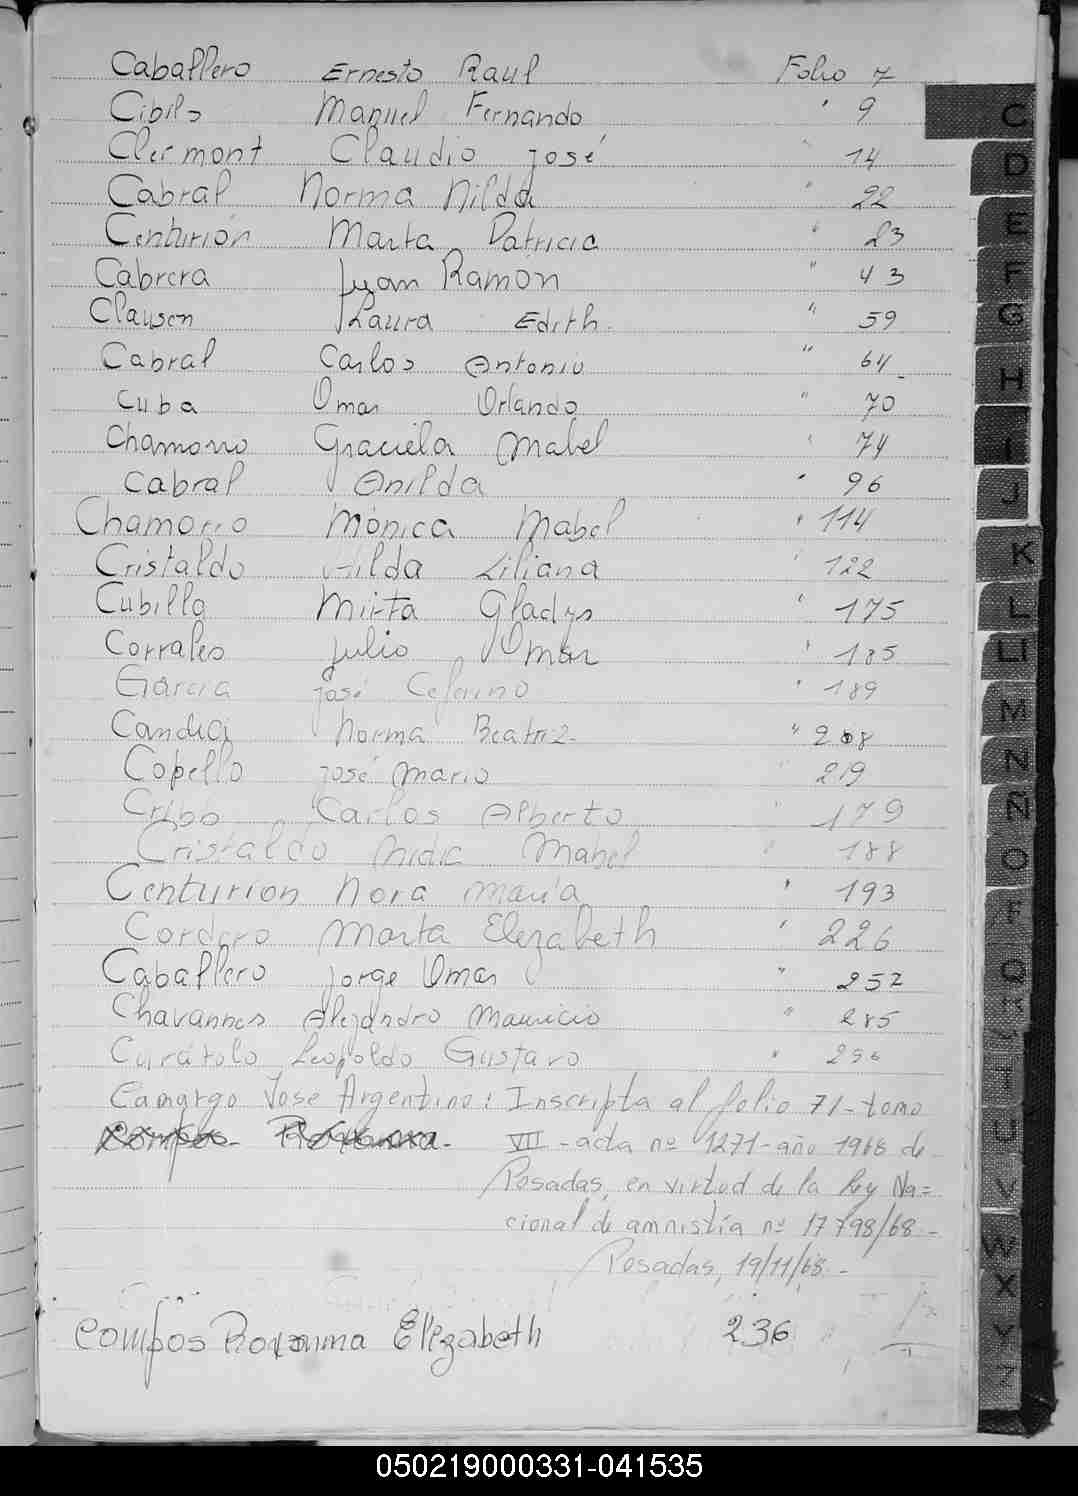 Caballero Ernesto Raul Folio 7
Cibils Manuel Fernando " 9
Clermont Claudio José " 14
Cabral Norma Nilda " 22
Centurión Marta Patricia " 23
Cabrera Juan Ramón " 43
Clausen Laura Edith. " 59
Cabral Carlos Antonio " 64
Cuba Omar Orlando " 70
Chamorro Graciela Mabel " 74
Cabral Anilda " 96
Chamorro Mónica Mabel " 114
Cristaldo Hilda Liliana " 122
Cubilla Mirta Gladys " 175
Corrales Julio Omar " 185
Garcia José Ceferino " 189
Candia Norma Beatriz " 208
Copello José Mario " 219
Cribb Carlos Alberto " 179
Cristaldo Nidia Mabel " 188
Centurion Nora María " 193
Cordero Marta Elizabeth " 226
Caballero Jorge Omar " 252
Chavannes Alejandro Mauricio " 285
Curátolo Leopoldo Gustavo " 256
Camargo Jose Argentino: Inscripta al folio 71-tomo
VII - acta nº 1271-año 1968 de
Posadas, en virtud de la ley Na=
cional de amnistía nº 17798/68-
Posadas, 19/11/68.-
Campos Roxanna Elizabeth 236
C
D
E
F
G
H
I
J
K
L
Ll
M
N
Ñ
O
P
Q
R
T
U
V
W
X
Y
Z
050219000331-041535